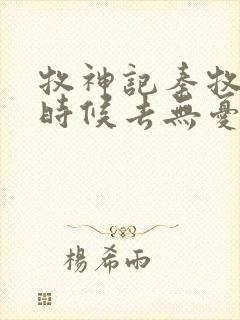 牧神記秦牧
時候去無憂
楊希雨